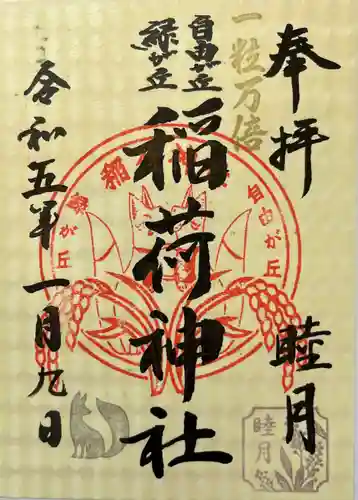 奉拝
睦月
一粒万倍
自由が丘
緑が丘
稲荷神社
令和五年一月九日
自由が丘
緑が丘
稲
睦月